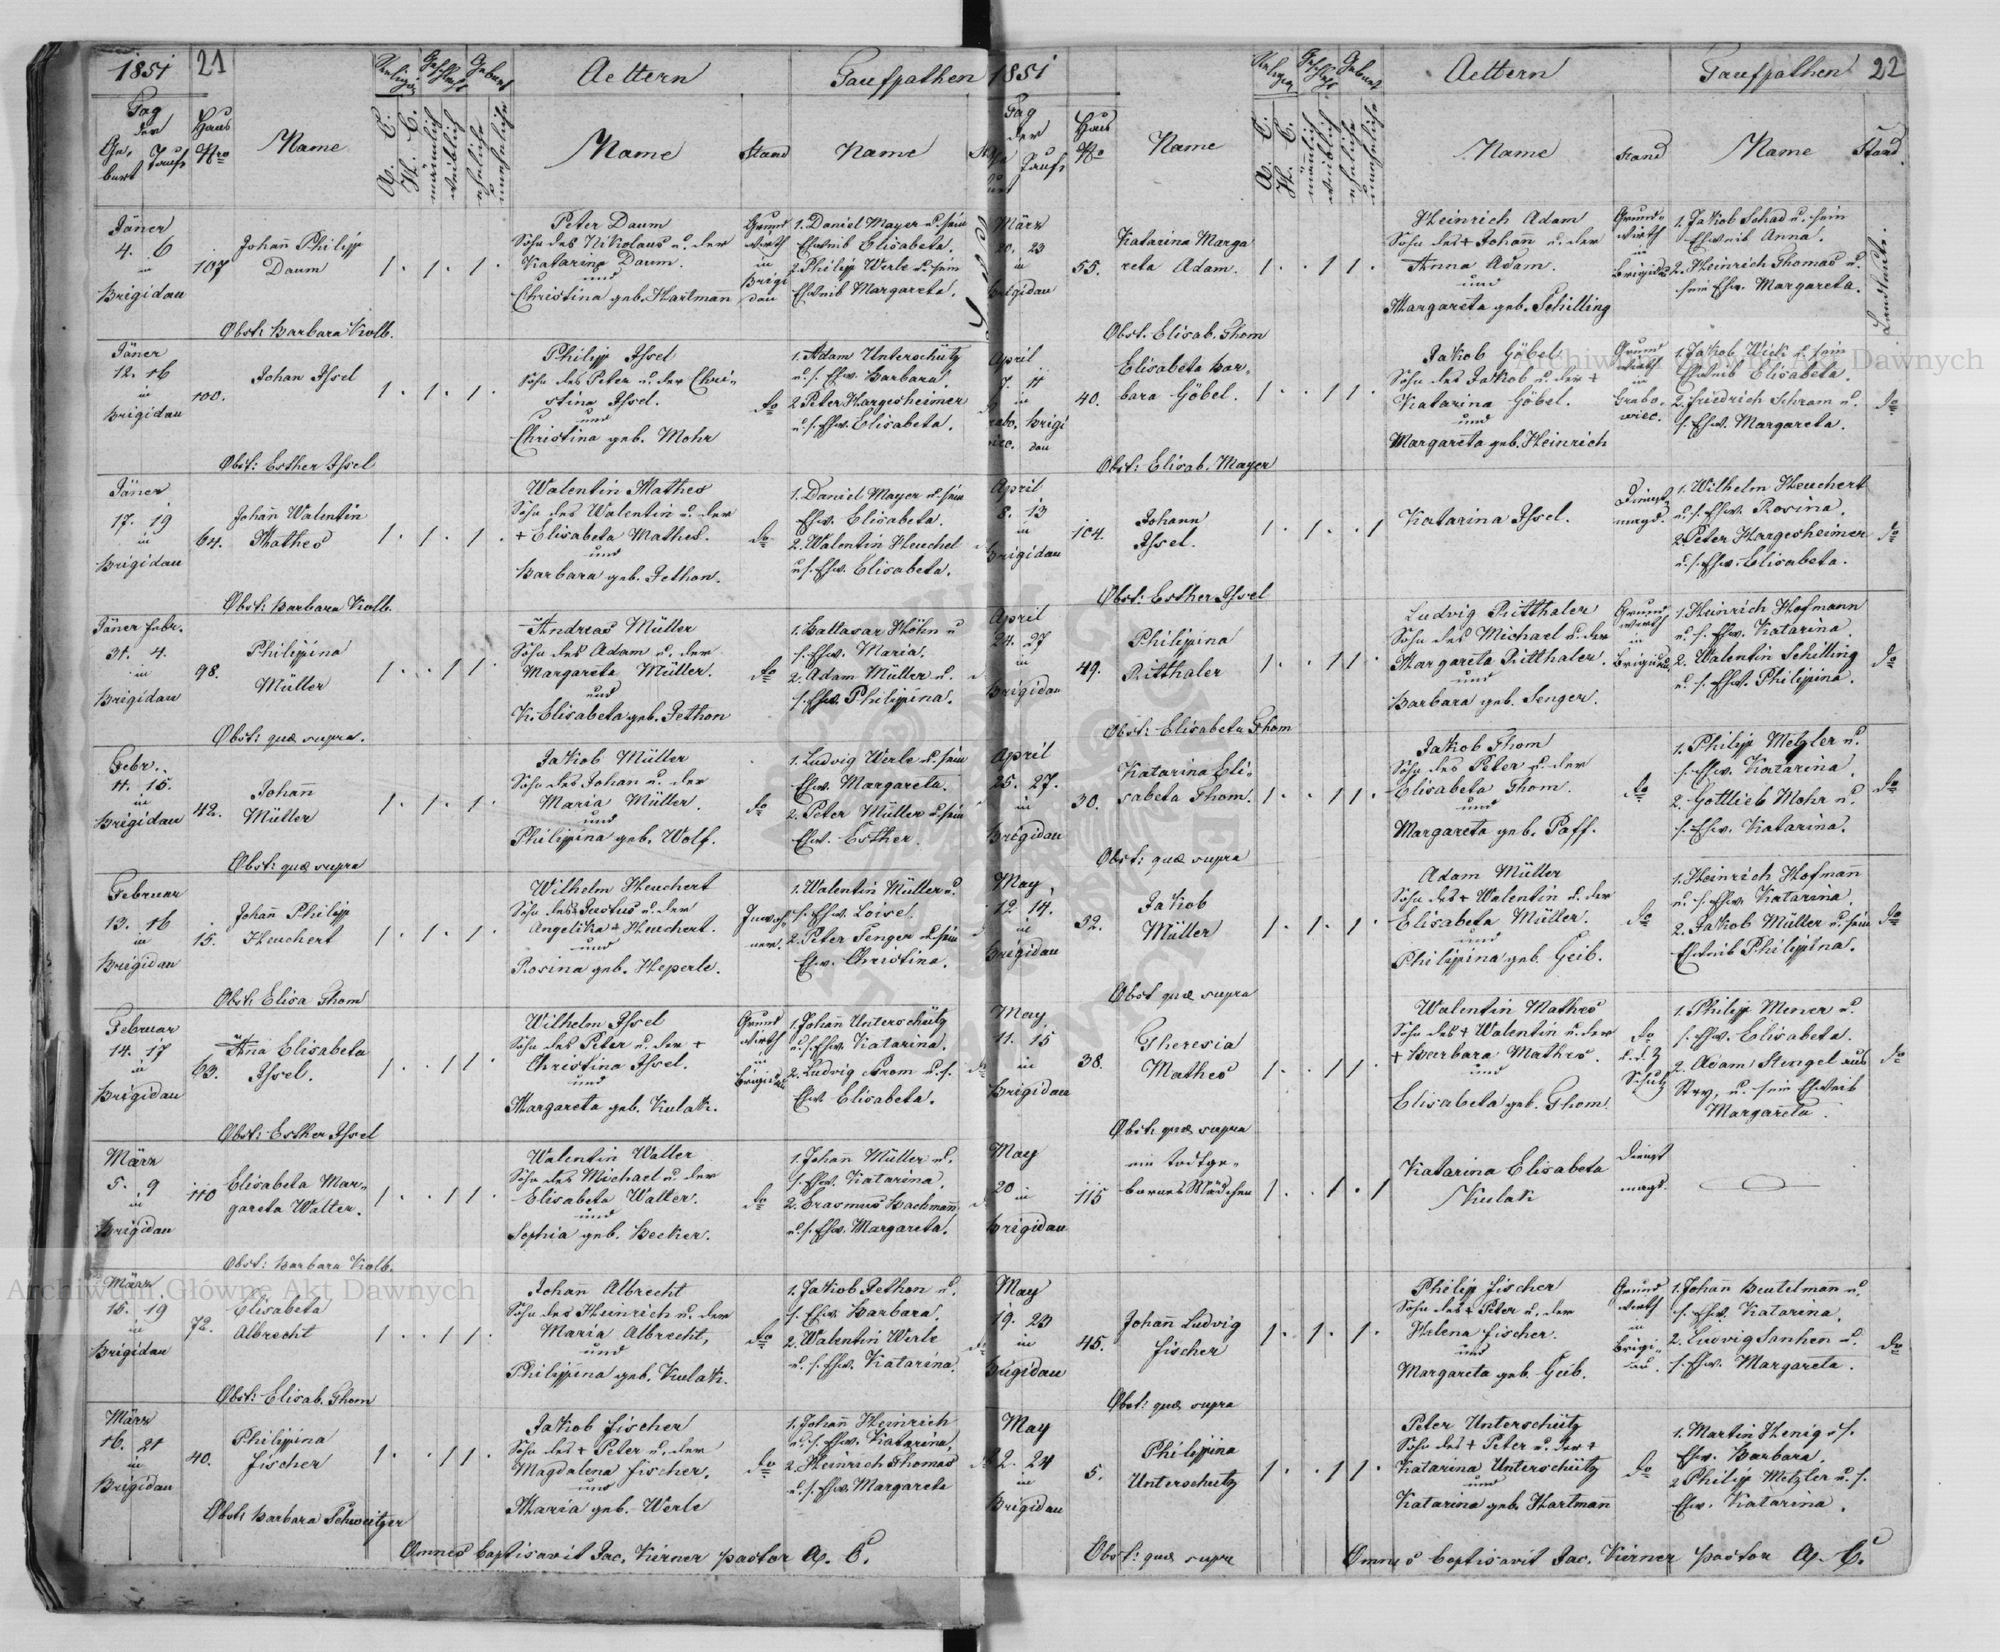 1851
21
Religion
Geschlecht
Geburt
Aeltern
Taufpathen
Tag
der
Ge-
burt
Taufe
Haus
Nro
Name
A. C.
H. C.
männlich
weiblich
eheliche
uneheliche
Name
Stand
Name
Jäner
4. 6
in
Brigidau
107
Johañ Philipp
Daum
1. 1. 1.
Peter Daum
Sohn des Nikolaus u. der
Katarina Daum.
und
Christina geb. Hartmañ
Grund
wirth
in
Brigi
dau
1. Daniel Mayer u. sein
Ehweib Elisabeta.
2. Philipp Werle u. sein
Ehweib Margareta.
Obst: Barbara Kolb.
Jäner
12. 16
in
Brigidau
100.
Johan Issel
1. 1. 1.
Philipp Issel
Sohn des Peter u. der Chri-
stina Issel.
und
Christina geb. Mohr
do
1. Adam Unterschütz
u. s. Ehw. Barbara.
2. Peter Hargesheimer
u. s. Ehw. Elisabeta.
Obst: Esther Issel
Jäner
17. 19
in
Brigidau
64.
Johañ Walentin
Mathes
1. 1. 1.
Walentin Mathes
Sohn des Walentin u. der
+ Elisabeta Mathes.
und
Barbara geb. Pethon.
do
1. Daniel Mayer u. sein
Ehw. Elisabeta.
2. Walentin Heuchel
u. s. Ehw. Elisabeta.
Obst: Barbara Kolb.
Jäner Febr.
31. 4.
in
Brigidau
98.
Philippina
Müller
1. 1 1.
Andreas Müller
Sohn des Adam u. der
Margareta Müller.
und
K. Elisabeta geb. Pethon
do
1. Baltasar Höhn u
s. Ehw. Maria.
2. Adam Müller u.
s. Ehw. Philippina.
Obst: quæ supra.
Febr.
11. 15.
in
Brigidau
42.
Johañ
Müller
1. 1. 1.
Jakob Müller
Sohn des Johan u. der
Maria Müller.
und
Philippina geb. Wolf.
do
1. Ludvig Werle u. sein
Ehw. Margareta.
2. Peter Müller u. sein
Ehw. Esther.
Obst: quæ supra
Februar
13. 16
in
Brigidau
15.
Johañ Philipp
Heuchert
1. 1. 1.
Wilhelm Heuchert
Sohn des Justus u. der
Angelika + Heuchert.
und
Rosina geb. Heperle.
Inwoh
ner.
1. Walentin Müller u.
s. Ehw. Loise.
2. Peter Senger u. sein
Ehw. Christina.
Obst: Elisa Thom
Februar
14. 17
in
Brigidau
63.
Añna Elisabeta
Issel.
1. 1 1.
Wilhelm Issel
Sohn des Peter u. der +
Christina Issel.
und
Margareta geb. Kulak.
Grund
wirth
in
Brigidau
1. Johañ Unterschütz
u. s. Ehw. Katarina.
2. Ludvig Krom u. s.
Ehw. Elisabeta.
Obst: Esther Issel
März
5. 9
in
Brigidau
110
Elisabeta Mar-
gareta Walter.
1. 1 1.
Walentin Walter
Sohn des Michael u. der
Elisabeta Walter.
und
Sophia geb. Becker.
do
1. Johañ Müller u.
s. Ehw. Katarina.
2. Erasmus Bachmañ
u. s. Ehw. Margareta.
Obst: Barbara Kolb.
März
15. 19
in
Brigidau
72.
Elisabeta
Albrecht
1. 1 1.
Johañ Albrecht
Sohn des Heinrich u. der
Maria Albrecht,
und
Philippina geb. Kulak.
do
1. Jakob Pethon u.
s. Ehw. Barbara.
2. Walentin Werle
u. s. Ehw. Katarina.
Obst: Elisab. Thom
März
16. 21
in
Brigidau
40.
Philippina
Fischer
1. 1 1.
Jakob Fischer
Sohn des + Peter u. der
Magdalena Fischer.
und
Maria geb. Werle
do
1. Johañ Heinrich
u. s. Ehw. Katarina,
2. Heinrich Thomas
u. s. Ehw. Margareta
Obst: Barbara Schweitzer
Omnes baptisavit Jac. Kierner pastor A. C.
1851
Religion
Geschlecht
Geburt
Aeltern
Taufpathen
22
Tag
der
Taufe
Haus
No
Name
A. C.
H. C.
männlich
weiblich
eheliche
uneheliche
Name
Stand
Name
Stand.
März
20. 23
in
Brigidau
55.
Katarina Marga
reta Adam.
1. 1 1.
Heinrich Adam
Sohn des + Johañ u. der
Anna Adam.
und
Margareta geb. Schilling
Grund-
wirth
in
Brigidau
1. Jakob Schad u. sein
Ehweib Anna.
2. Heinrich Thomas u.
sein Ehw. Margareta.
Landleute.
Obst: Elisab. Thom
April
7. 11
in
Grabo. Brigi
wiec. dau
40.
Elisabeta Bar-
bara Göbel.
1. 1 1.
Jakob Göbel
Sohn des Jakob u. der +
Katarina Göbel.
und
Margareta geb. Heinrich
Grund
wirth
in
Grabo-
wiec.
1. Jakob Wick u. sein
Ehweib Elisabeta.
2. Friedrich Schram u.
s. Ehw. Margareta.
do
Obst: Elisab. Mayer
April
8. 13
in
Brigidau
104.
Johann
Issel.
1. 1. 1
Katarina Issel.
Dienst
magd.
1. Wilhelm Heuchert
u. s. Ehw. Rosina.
2. Peter Hargesheimer
u. s. Ehw. Elisabeta.
do
Obst: Esther Issel
April
24. 27
in
Brigidau
49.
Philipina
Ritthaler
1. 1 1.
Ludvig Ritthaler
Sohn des Michael u. der
Margareta Ritthaler.
und
Barbara geb. Senger.
Grund
wirth
in
Brigidau
1. Heinrich Hofmann
u. s. Ehw. Katarina.
2. Walentin Schilling
u. s. Ehw. Philippina.
do
Obst: Elisabeta Thom
April
25. 27.
in
Brigidau
30.
Katarina Eli-
sabeta Thom.
1. 1 1.
Jakob Thom
Sohn des Peter u. der
Elisabeta Thom.
und
Margareta geb. Paff.
do
1. Philipp Metzler u.
s. Ehw. Katarina.
2. Gottlieb Mohr u.
s. Ehw. Katarina.
do
Obst: quæ supra
May
12. 14.
in
Brigidau
52.
Jakob
Müller
1. 1. 1.
Adam Müller
Sohn des + Walentin u. der
Elisabeta Müller.
und
Philippina geb. Geib.
do
1. Heinrich Hofmañ
u. s. Ehw. Katarina.
2. Jakob Müller u. sein
Ehweib Philippina.
do
Obst quæ supra
May
11. 15
in
Brigidau
38.
Theresia
Mathes
1. 1 1.
Walentin Mathes
Sohn des + Walentin u. der
+ Barbara Mathes.
und
Elisabeta geb. Thom.
do
1. Philipp Mener u.
s. Ehw. Elisabeta.
2. Adam Stengel aus
Stry, u. sein Ehweib
Margareta.
do
Obst: quæ supra
May
20
in
Brigidau
115
ein todtge-
bornes Mädchen
1. 1. 1
Katarina Elisabeta
Kulak
Dienst
magd.
May
19. 23
in
Brigidau
45.
Johañ Ludvig
Fischer
1. 1. 1.
Philip Fischer
Sohn des + Peter u. der
Helena Fischer.
und
Margareta geb. Geib.
Grund
wirth
in
Brigi-
dau.
1. Johañ Beutelmañ u.
s. Ehw. Katarina.
2. Ludvig Janhen u.
s. Ehw. Margareta.
do
Obst: quæ supra
May
22. 24
in
Brigidau
5.
Philippina
Unterschütz
1. 1 1.
Peter Unterschütz
Sohn des + Peter u. der +
Katarina Unterschütz
und
Katarina geb. Hartmañ
do
1. Martin Henig u. s.
Ehw. Barbara.
2 Philipp Metzler u. s.
Ehw. Katarina.
Obst: quæ supra
Omnes baptisavit Jac. Kierner pastor A. C.
Archiwum Główne Akt Dawnych
Archiwum Główne Akt Dawnych